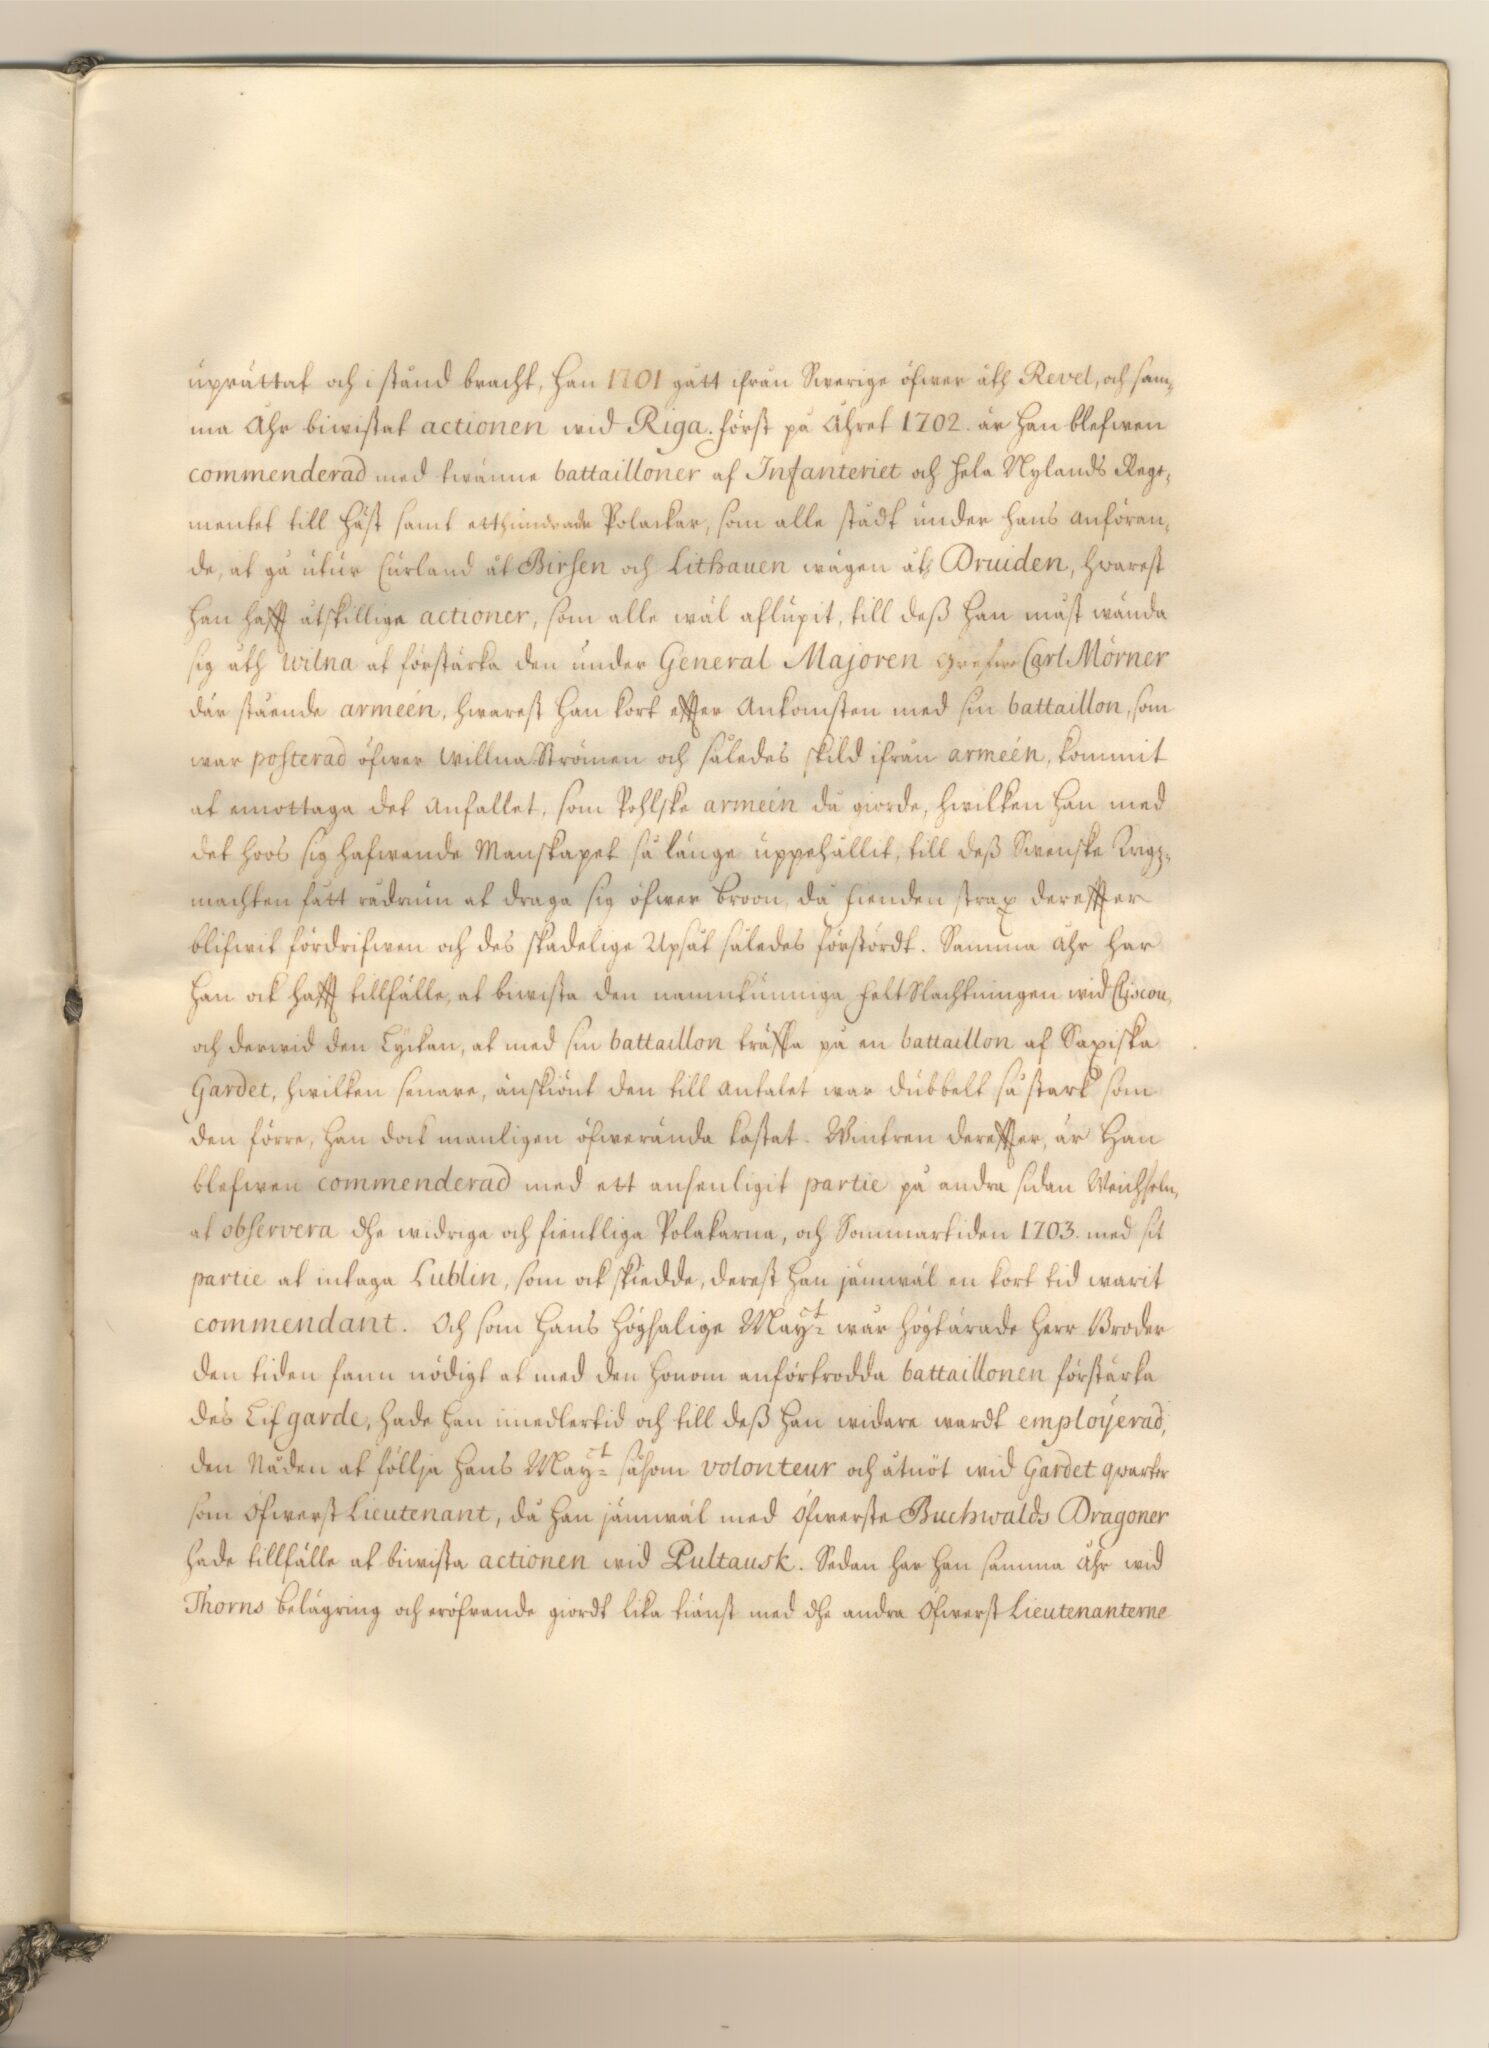 uprättat och i stånd bracht, han 1701 gått ifrån Swerige öfwer åth Revel, och sam-
ma Åhr biwistat actionen wid Riga. först på Åhret 1702. är han blefwen
commenderad med twänne battailloner af Infanteriet och hela Nylands Rege-
mentet till häst samt etthundrade Polackar, som alle stådt under hans anföran-
de, at gå utur Curland åt Birsen och Lithauen wägen åth Druiden, hwarest
han hafft åtskillige actioner, som alle wäl aflupit, till deß han måst wända
sig åth Wilna at förstärka den under General Majoren Grefwe Carl Mörner
där stående arméen, hwarest han kort effter Ankomsten med sin battaillon, som
war posterad öfwer Willna Strömen och således skild ifrån arméen, kommit
at emottaga det Anfallet, som Pohlske arméen då giorde, hwilken han med
det hoos sig hafwande Manskapet så länge uppehållit, till deß Swenske Krigz-
machten fått rådrum at draga sig öfwer broon, då fienden strax dereffter
blifwit fördrifwen och des skadelige Upsåt således förstördt. Samma åhr har
han ock hafft tillfälle, at biwista den namnkunniga Felt Slachtningen wid Cliscou,
och derwid den Lyckan, at med sin battaillon träffa på en battaillon af Saxiska
Gardet, hwilken senare, änskiönt den till antalet war dubbelt så stark som
den förre, han dock manligen öfwerända kastat. Wintren dereffter, är Han
blefwen commenderad med ett ansenligit partie på andra sidan Weichseln,
at observera dhe widrige och fientliga Polakarna, och Sommartiden 1703. med sit
partie at intaga Lublin, som ock skiedde, derest han jämwäl en kort tid warit
commendant. Och som Hans Högsalige Maij:t wår högtärade Herr Broder
den tiden fann nödigt at med den honom anförtrodda battaillonen förstärka
des Lif garde, hade han imedlertid och till deß han widare wardt employerad,
den Nåden at föllja Hans Maij:t såsom volonteur och åtnöt wid Gardet qwarter
som Öfwerst Lieutenant, då han jämwäl med Öfwerste Buchwalds Dragoner
hade tillfälle at biwista actionen wid Pultausk. Sedan har han samma Åhr wid
Thorns belägring och eröfrande giordt lika tiänst med dhe andra Öfwerst Lieutenanterne